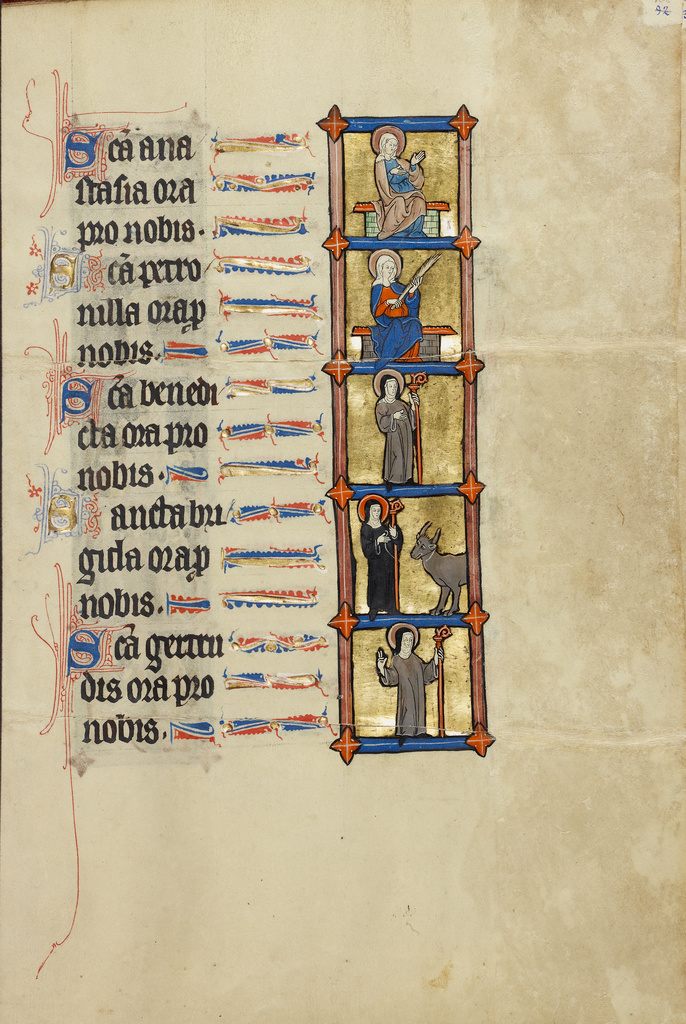 42
Scā ana
stasia ora
pro nobis.
Scā petro
nilla ora p
nobis.
Scā benedi
cta ora pro
nobis.
Sancta bri
gida ora p
nobis.
Scā gertru
dis ora pro
nobis.